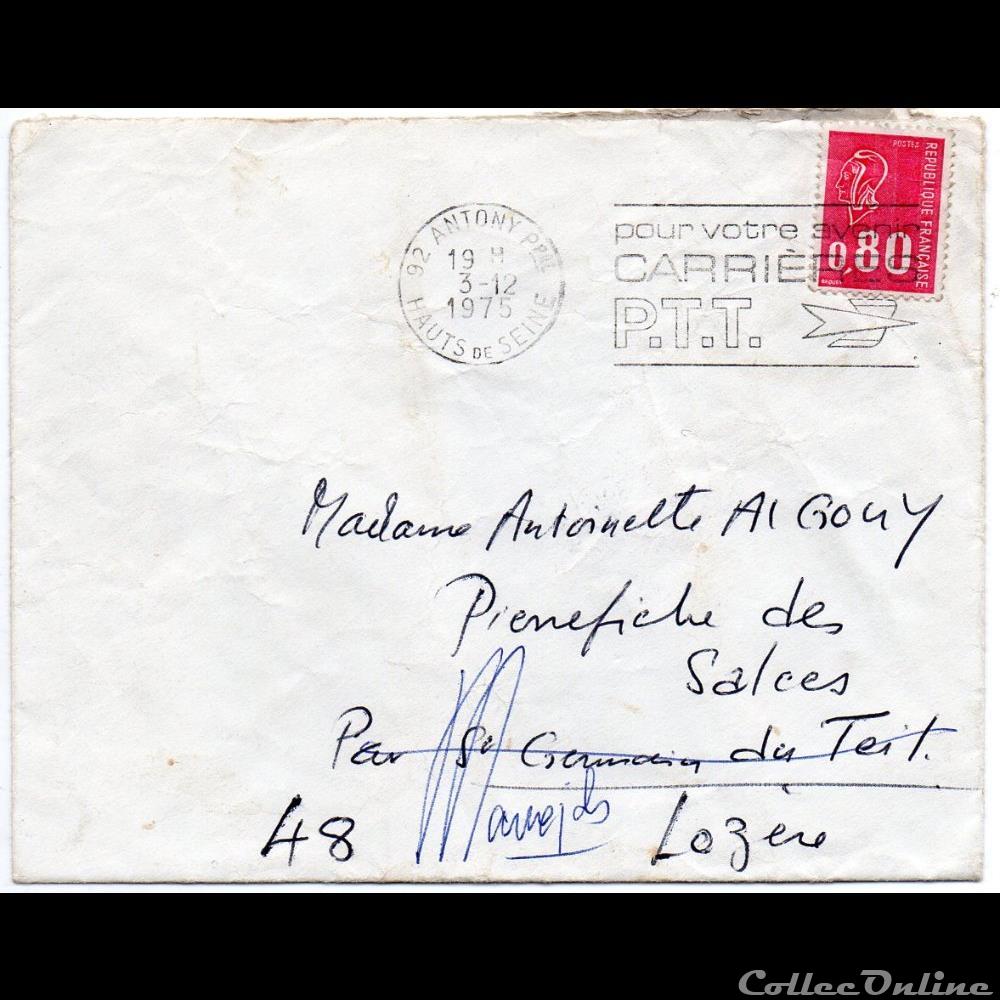 POSTES
REPUBLIQUE FRANÇAISE
0,80
92 ANTONY PPAL
19 H
3-12
1975
HAUTS DE SEINE
pour votre avenir
CARRIÈRES
P.T.T.
Madame Antoinette AIGOUY
Pierrefiche des
Salces
Par St Germain du Teit.
Marvejols
48 Lozère
ColleconLine